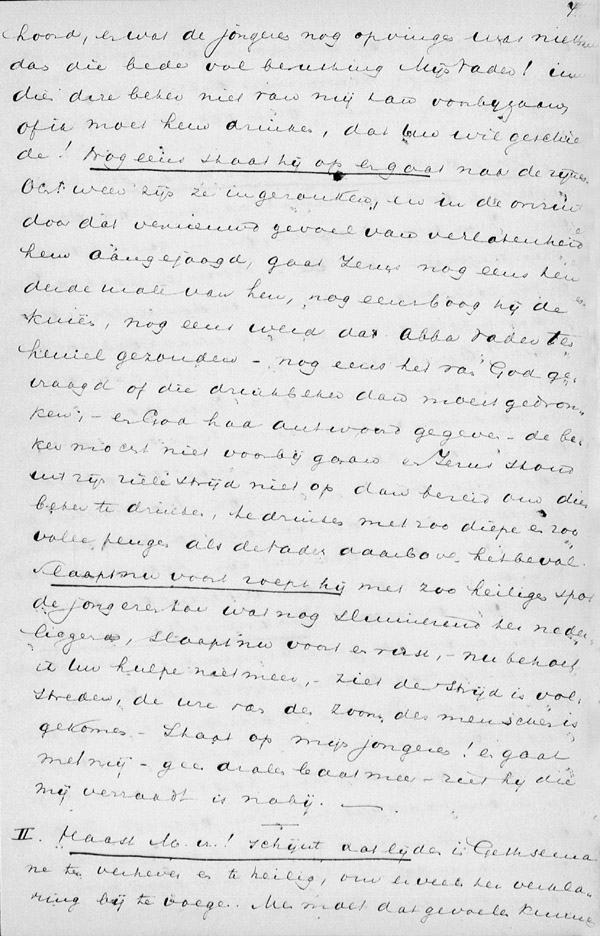 7
hoord, en wat de jongeren nog opvingen was niets
dan die bede vol berusting Mijn Vader! in
dien deze beker niet van mij kan voorbijgaan
of ik moet hem drinken, dat Uw wil geschie
de! Nog eens staat hij op en gaat naar de zijnen
Och! weer zijn ze ingezonken, en in de onrust
door dat vernieuwd gevoel van verlatenheid
hem aangejaagd, gaat Jezus nog eens ten
derde male van hen, nog eens boog hij de
knieën, nog eens werd dat Abba Vader ten
hemel gezonden – nog eens het van God ge-
vraagd of die drinkbeker dan moest gedron-
ken, – en God had antwoord gegeven – de be-
ker mocht niet voorbij gaan en Jezus stond
uit zijn zielestrijd niet op dan bereid om dien
beker te drinken, te drinken met zoo diepe en zoo
volle teugen als de Vader daarboven het beval.
Slaapt nu voort roept hij met zoo heiligen spot
de jongeren toe wat nog sluimerend ter neder
liggen, slaapt nu voort en rust, – nu behoef
ik Uw hulpe niet meer, – ziet de strijd is vol-
streden, de ure van den Zoon des menschen is
gekomen – Staat op mijn jongeren! en gaat
met mij – geen dralen baat meer – ziet hij die
mij verraadt is nabij. —
II. Haast M. H.! schijnt dat lijden in Gethsema
ne te verheven en te heilig, om er veel ter verkla-
ring bij te voegen. Men moet dat gevoelen kunnen